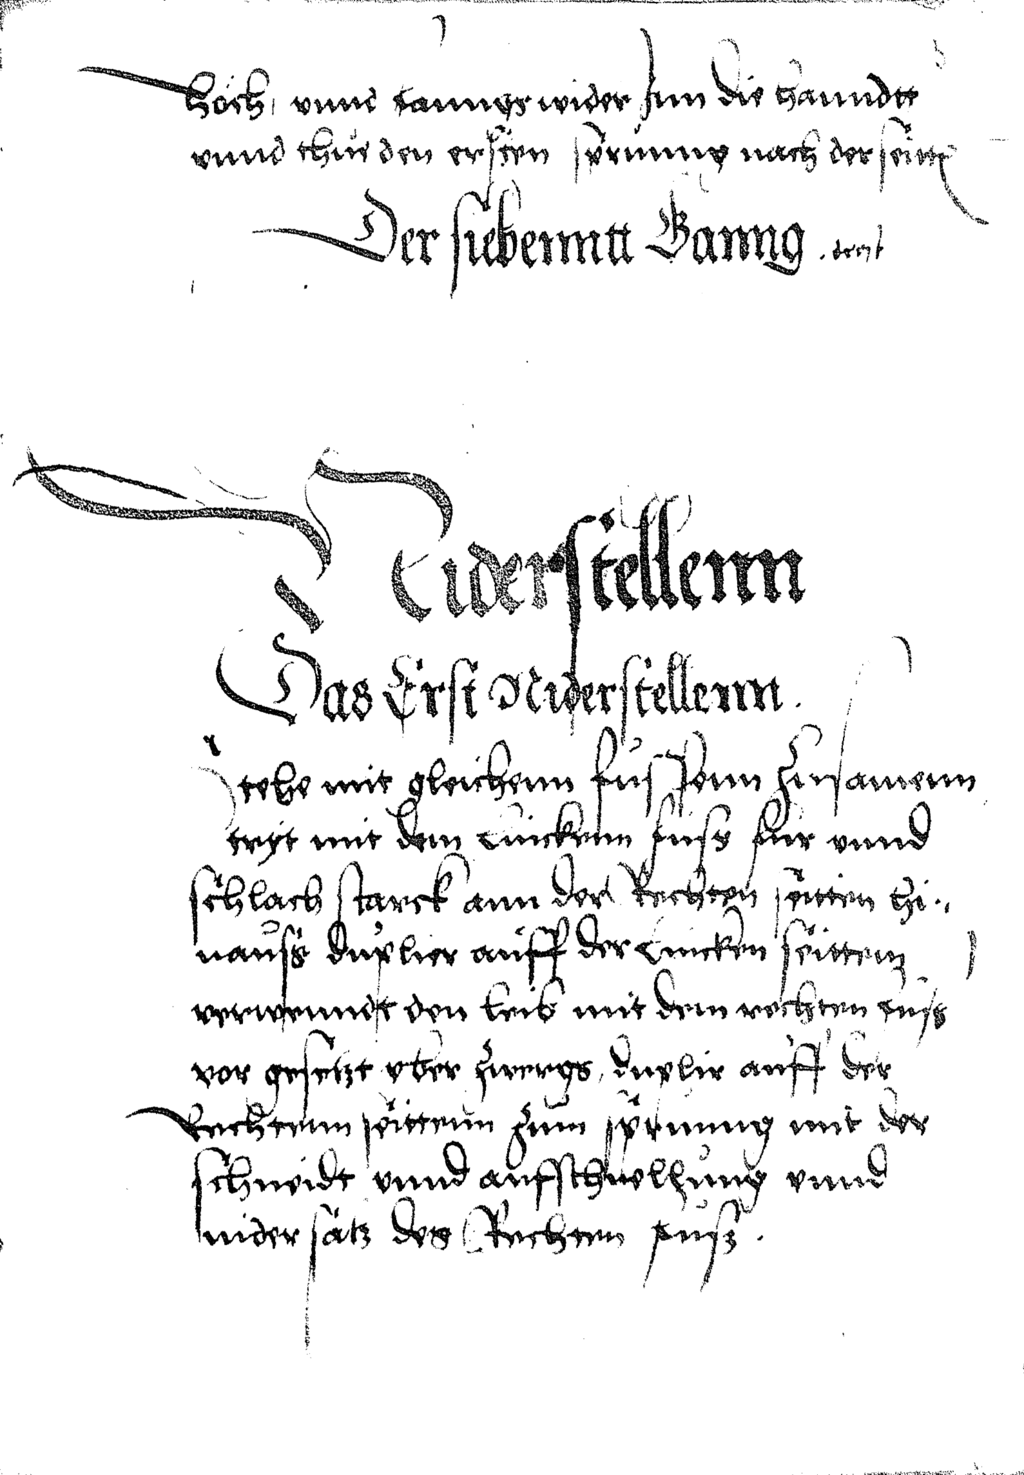 hoch, vnnd fanngs wider Jnn die Hanndtt
vnnd thue den ersten sprunng nach der seittn
Der siebenntt Ganng
Niderstellenn
Das Erst Niderstellenn.
Stehe mit gleichenn fuͤssenn Zusamenn
tryt mit dem Linckenn fuss fur vnnd
schlach starck ann der Rechten seitten hi-
nauss duplier auff der Lincken seittenn
verwenndt den leib mit dem rechten fuss
vor gesetzt vber zwergs, duplir auff der
Rechtenn seittenn zum sprunng mit der
schneidt vnnd aufschnellung vnnd
nidersatz des Rechten fuss.